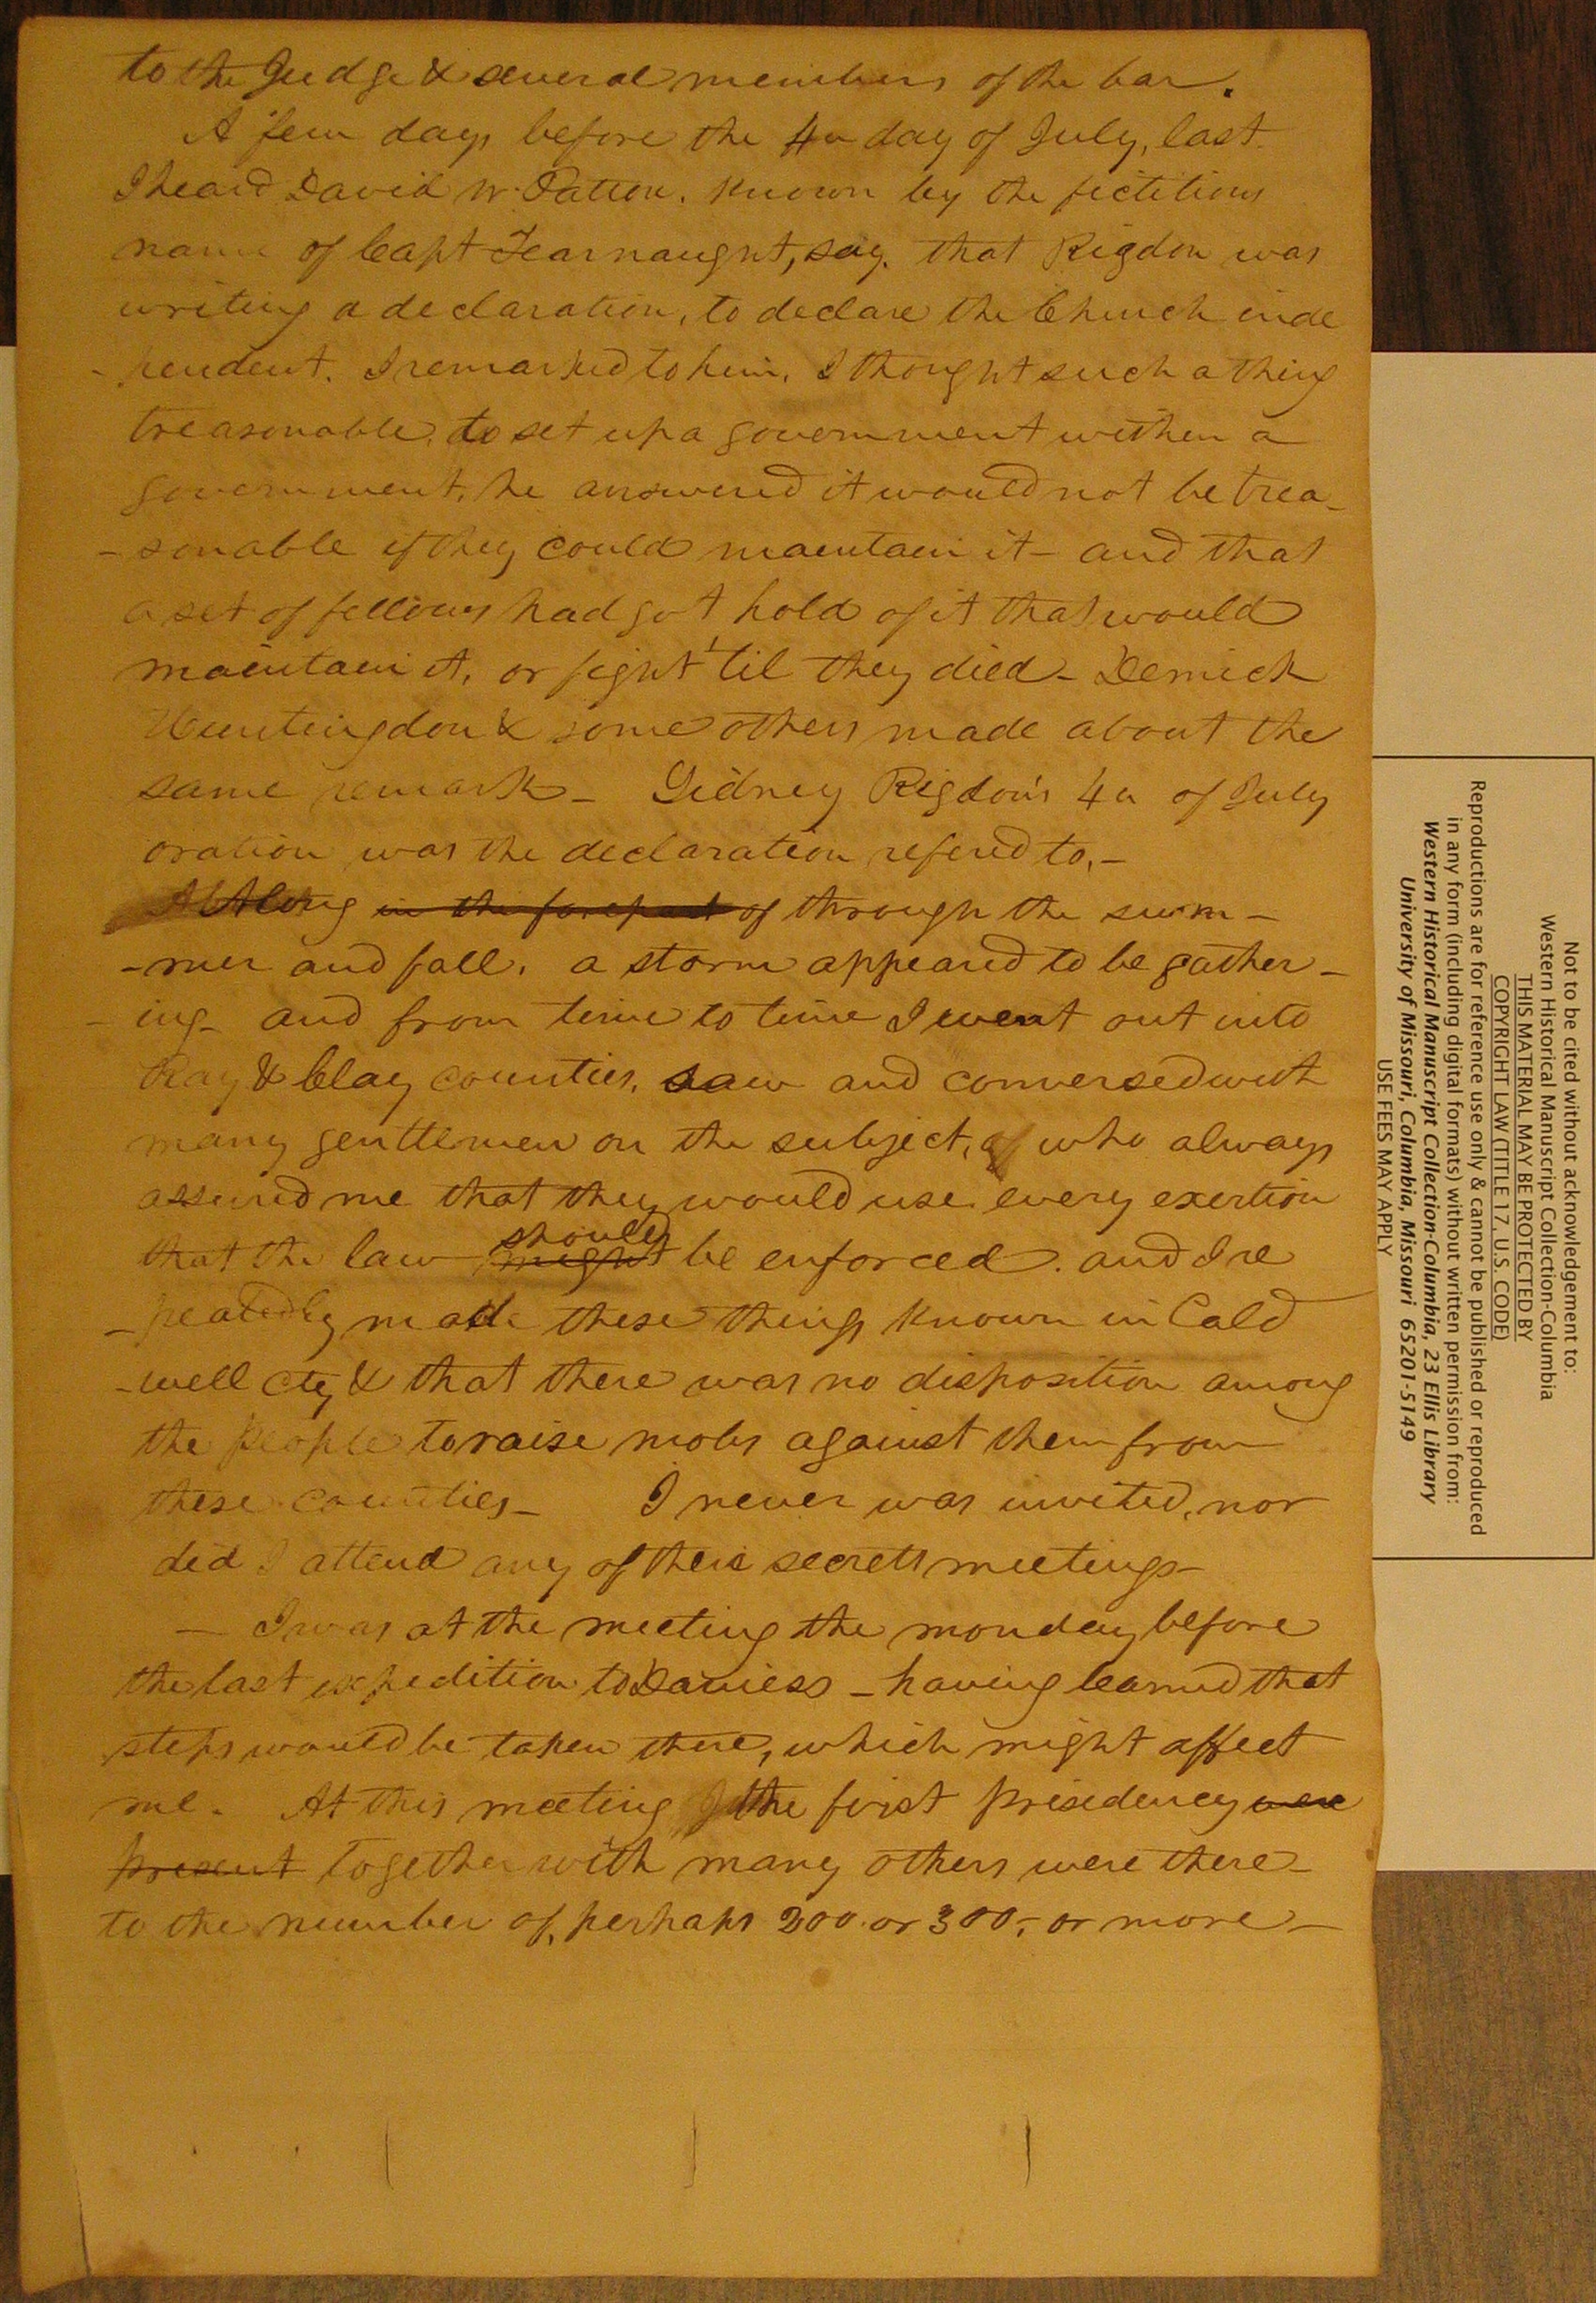 to the Judge & several members of the bar.
A few days before the 4th day of July, last.
I heard David W. Patton. Known by the fictitious
name of Capt Fearnaught, say. that Rigdon was
writing a declaration, to declare the Church inde
- pendent. I remarked to him, I thought such a thing
treasonable, to set up a government within a
government, he answered it would not be trea-
- sonable if they could maintain it - and that
a set of fellows had got hold of it that would
maintain it, or fight 'til they died - Demick
Huntingdon & some others made about the
same remark - Sidney Rigdon's 4th of July
oration was the declaration refered to, -
Along in the forepart of through the sum -
- mer and fall. a storm appeared to be gather -
- ing - and from time to time I went out into
Ray & Clay counties, saw and conversed with
many gentlemen on the subject, of who always
assured me that they would use every exertion
should
that the law might be enforced. and I re
- peatedly made these things known in Cald
- well cty & that there was no disposition among
the people to raise mobs against them from
these counties - I never was invited, nor
did I attend any of their secrett meetings -
- I was at the meeting the monday before
the last expedition to Daviess - having learned that
steps would be taken there, which might affect
me. At this meeting the first presedency were
present together with many others were there -
to the number of, perhaps 200 or 300, - or more -
Not to be cited without acknowledgement to:
Western Historical Manuscript Collection-Columbia
THIS MATERIAL MAY BE PROTECTED BY
COPYRIGHT LAW (TITLE 17, U.S. CODE)
Reproductions are for reference use only & cannot be published or reproduced
in any form (including digital formats) without written permission from:
Western Historical Manuscript Collection-Columbia, 23 Ellis Library
University of Missouri, Columbia, Missouri 65201-5149
USE FEES MAY APPLY